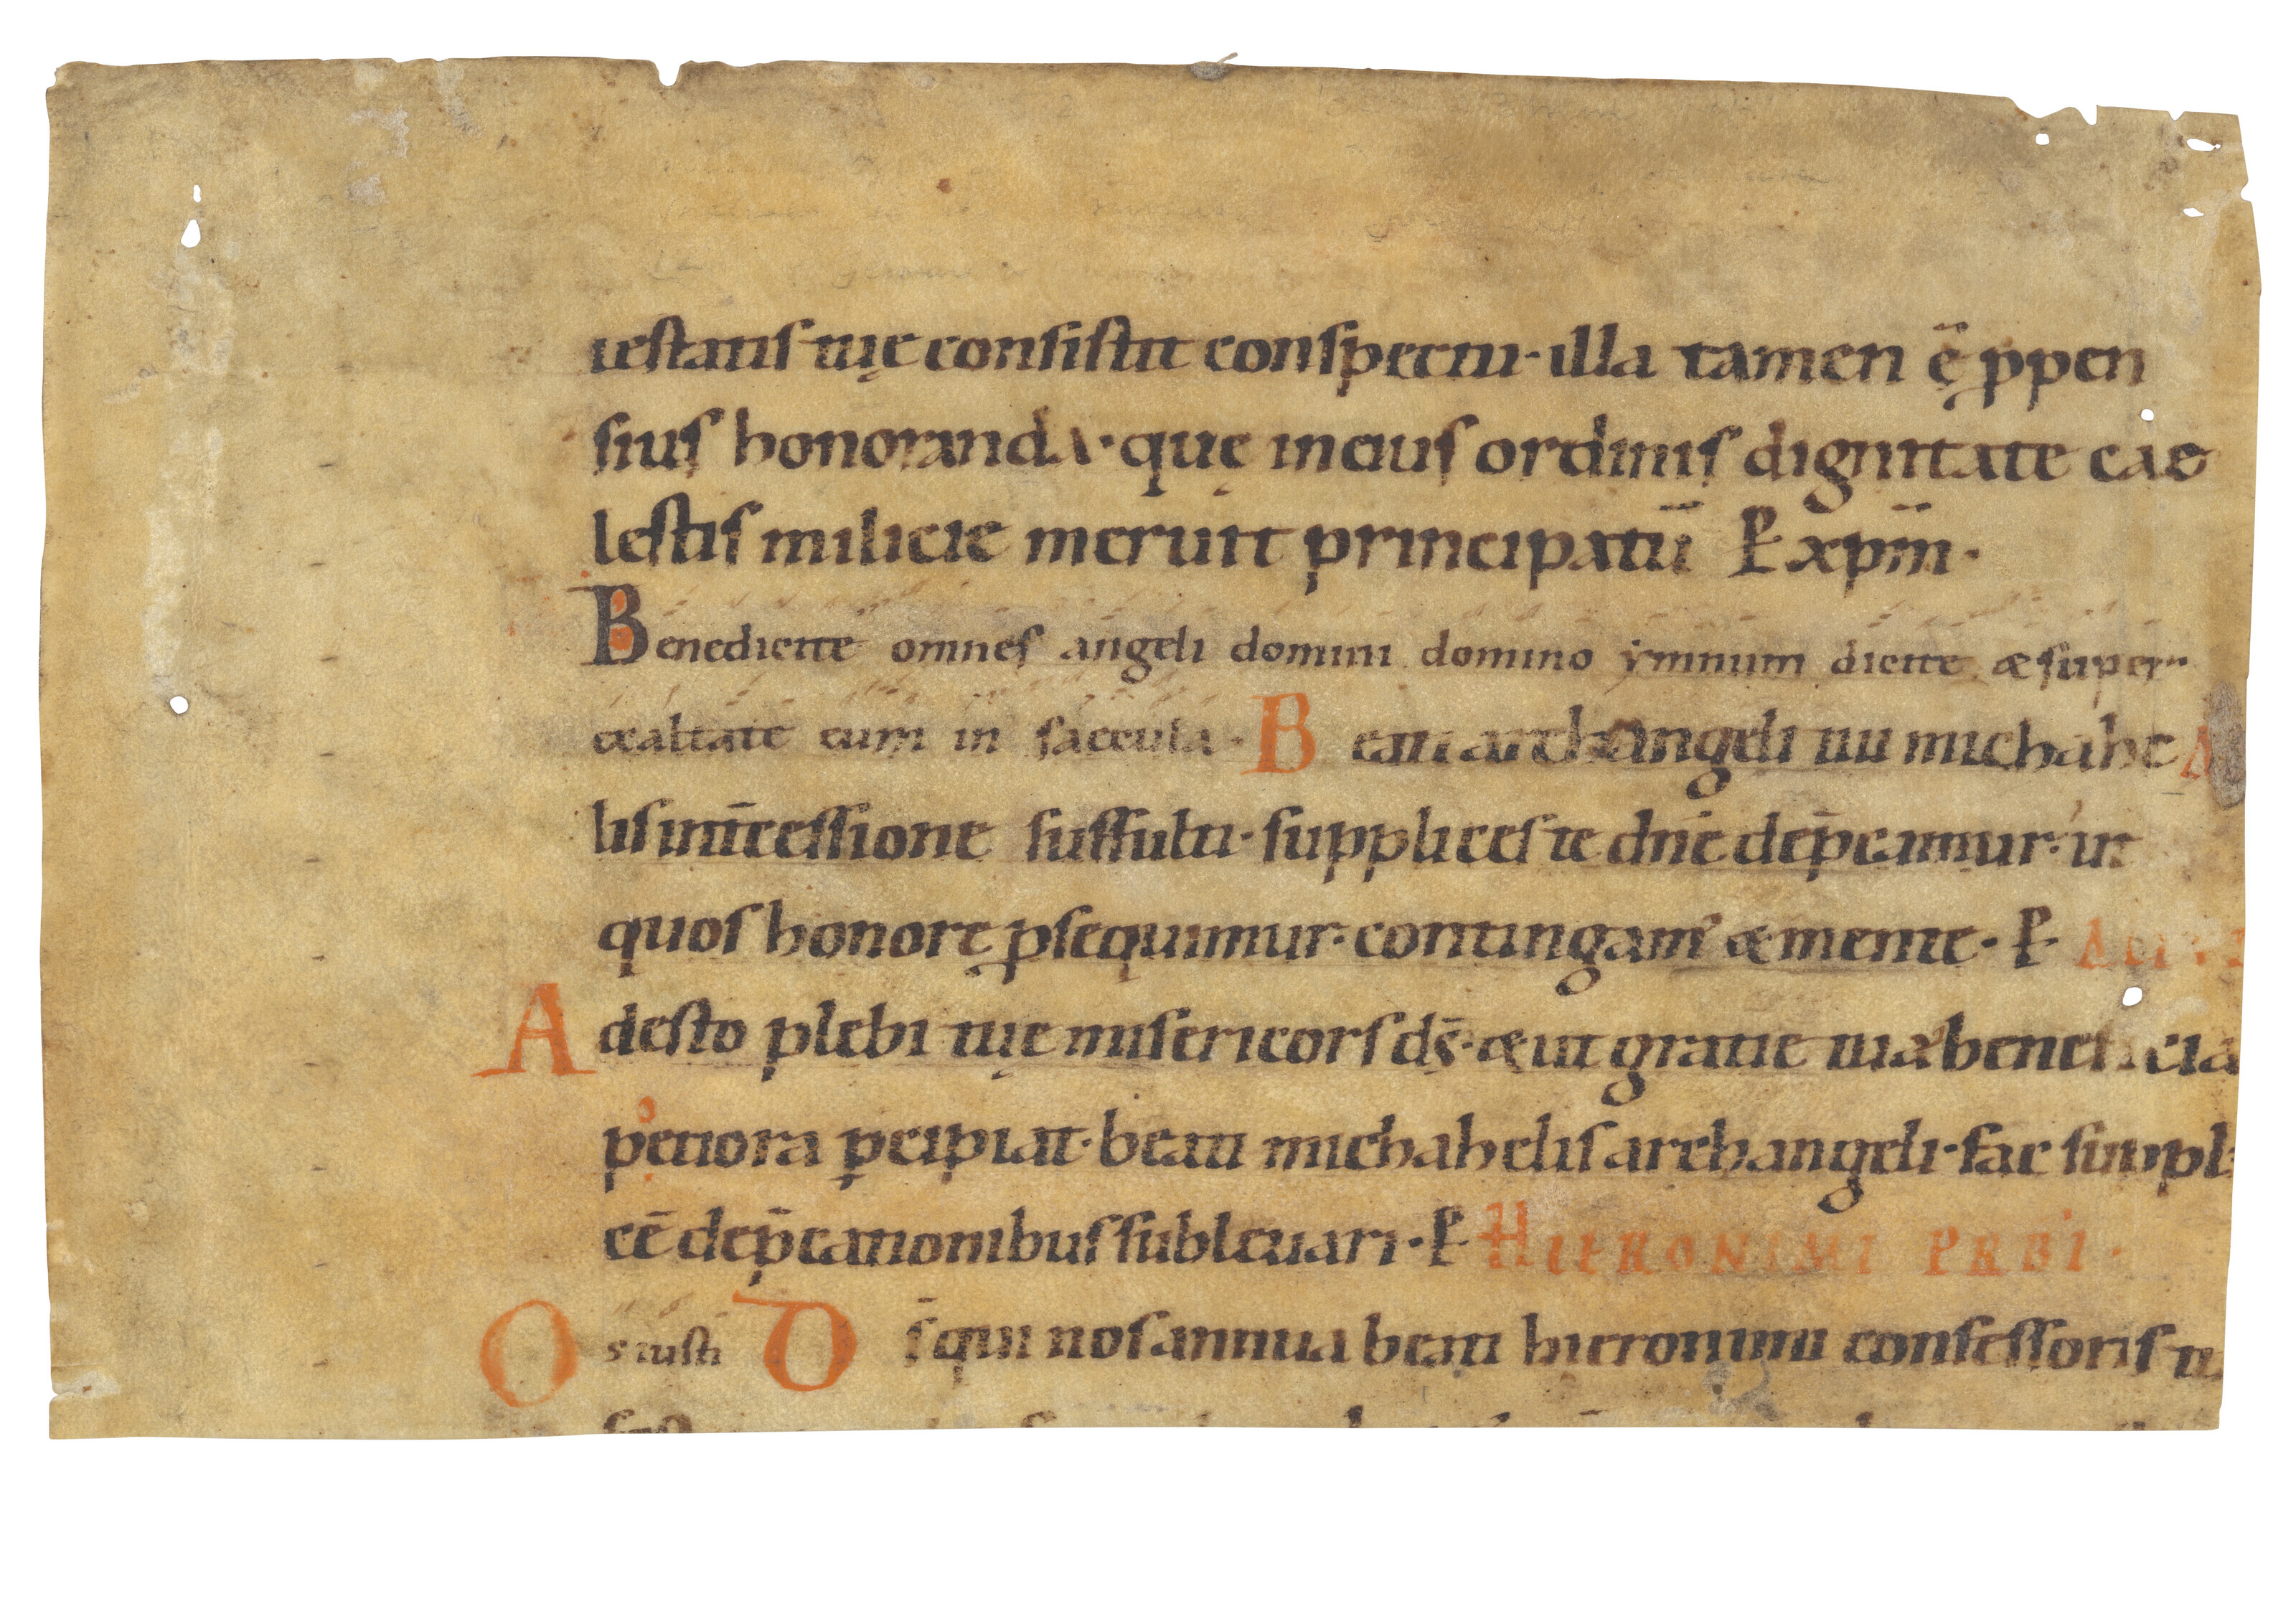 iestatis tuę consistit conspectu · illa tamen ę̄ ꝓpen
sius honoranda · quę in eius ordinis dignitate cae
lestis milicie meruit principatū P̵ xp̄m̄ ·
Benedicite omnes angeli domini domino ẏmnum dicite & super
exaltate eum in saecula · Beati archangeli tui michahe
lis int̄cessione suffulti · supplices te dn̄e dep̄camur · ut
quos honore ꝓsequimur · contingam' & mente · P̵
Adesto plebi tuę misericors ds̄ · & ut gratie tuae beneficia
potiora ꝑcipiat · beati michahelis archangeli · fac suppli
cē dep̄cationibus subleuari · P̵ HIERONIMI PRBI ·
Os iusti Ds̄ qui nos annua beati hieronimi confessoris tu